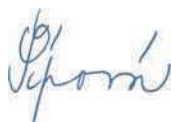 Šípová